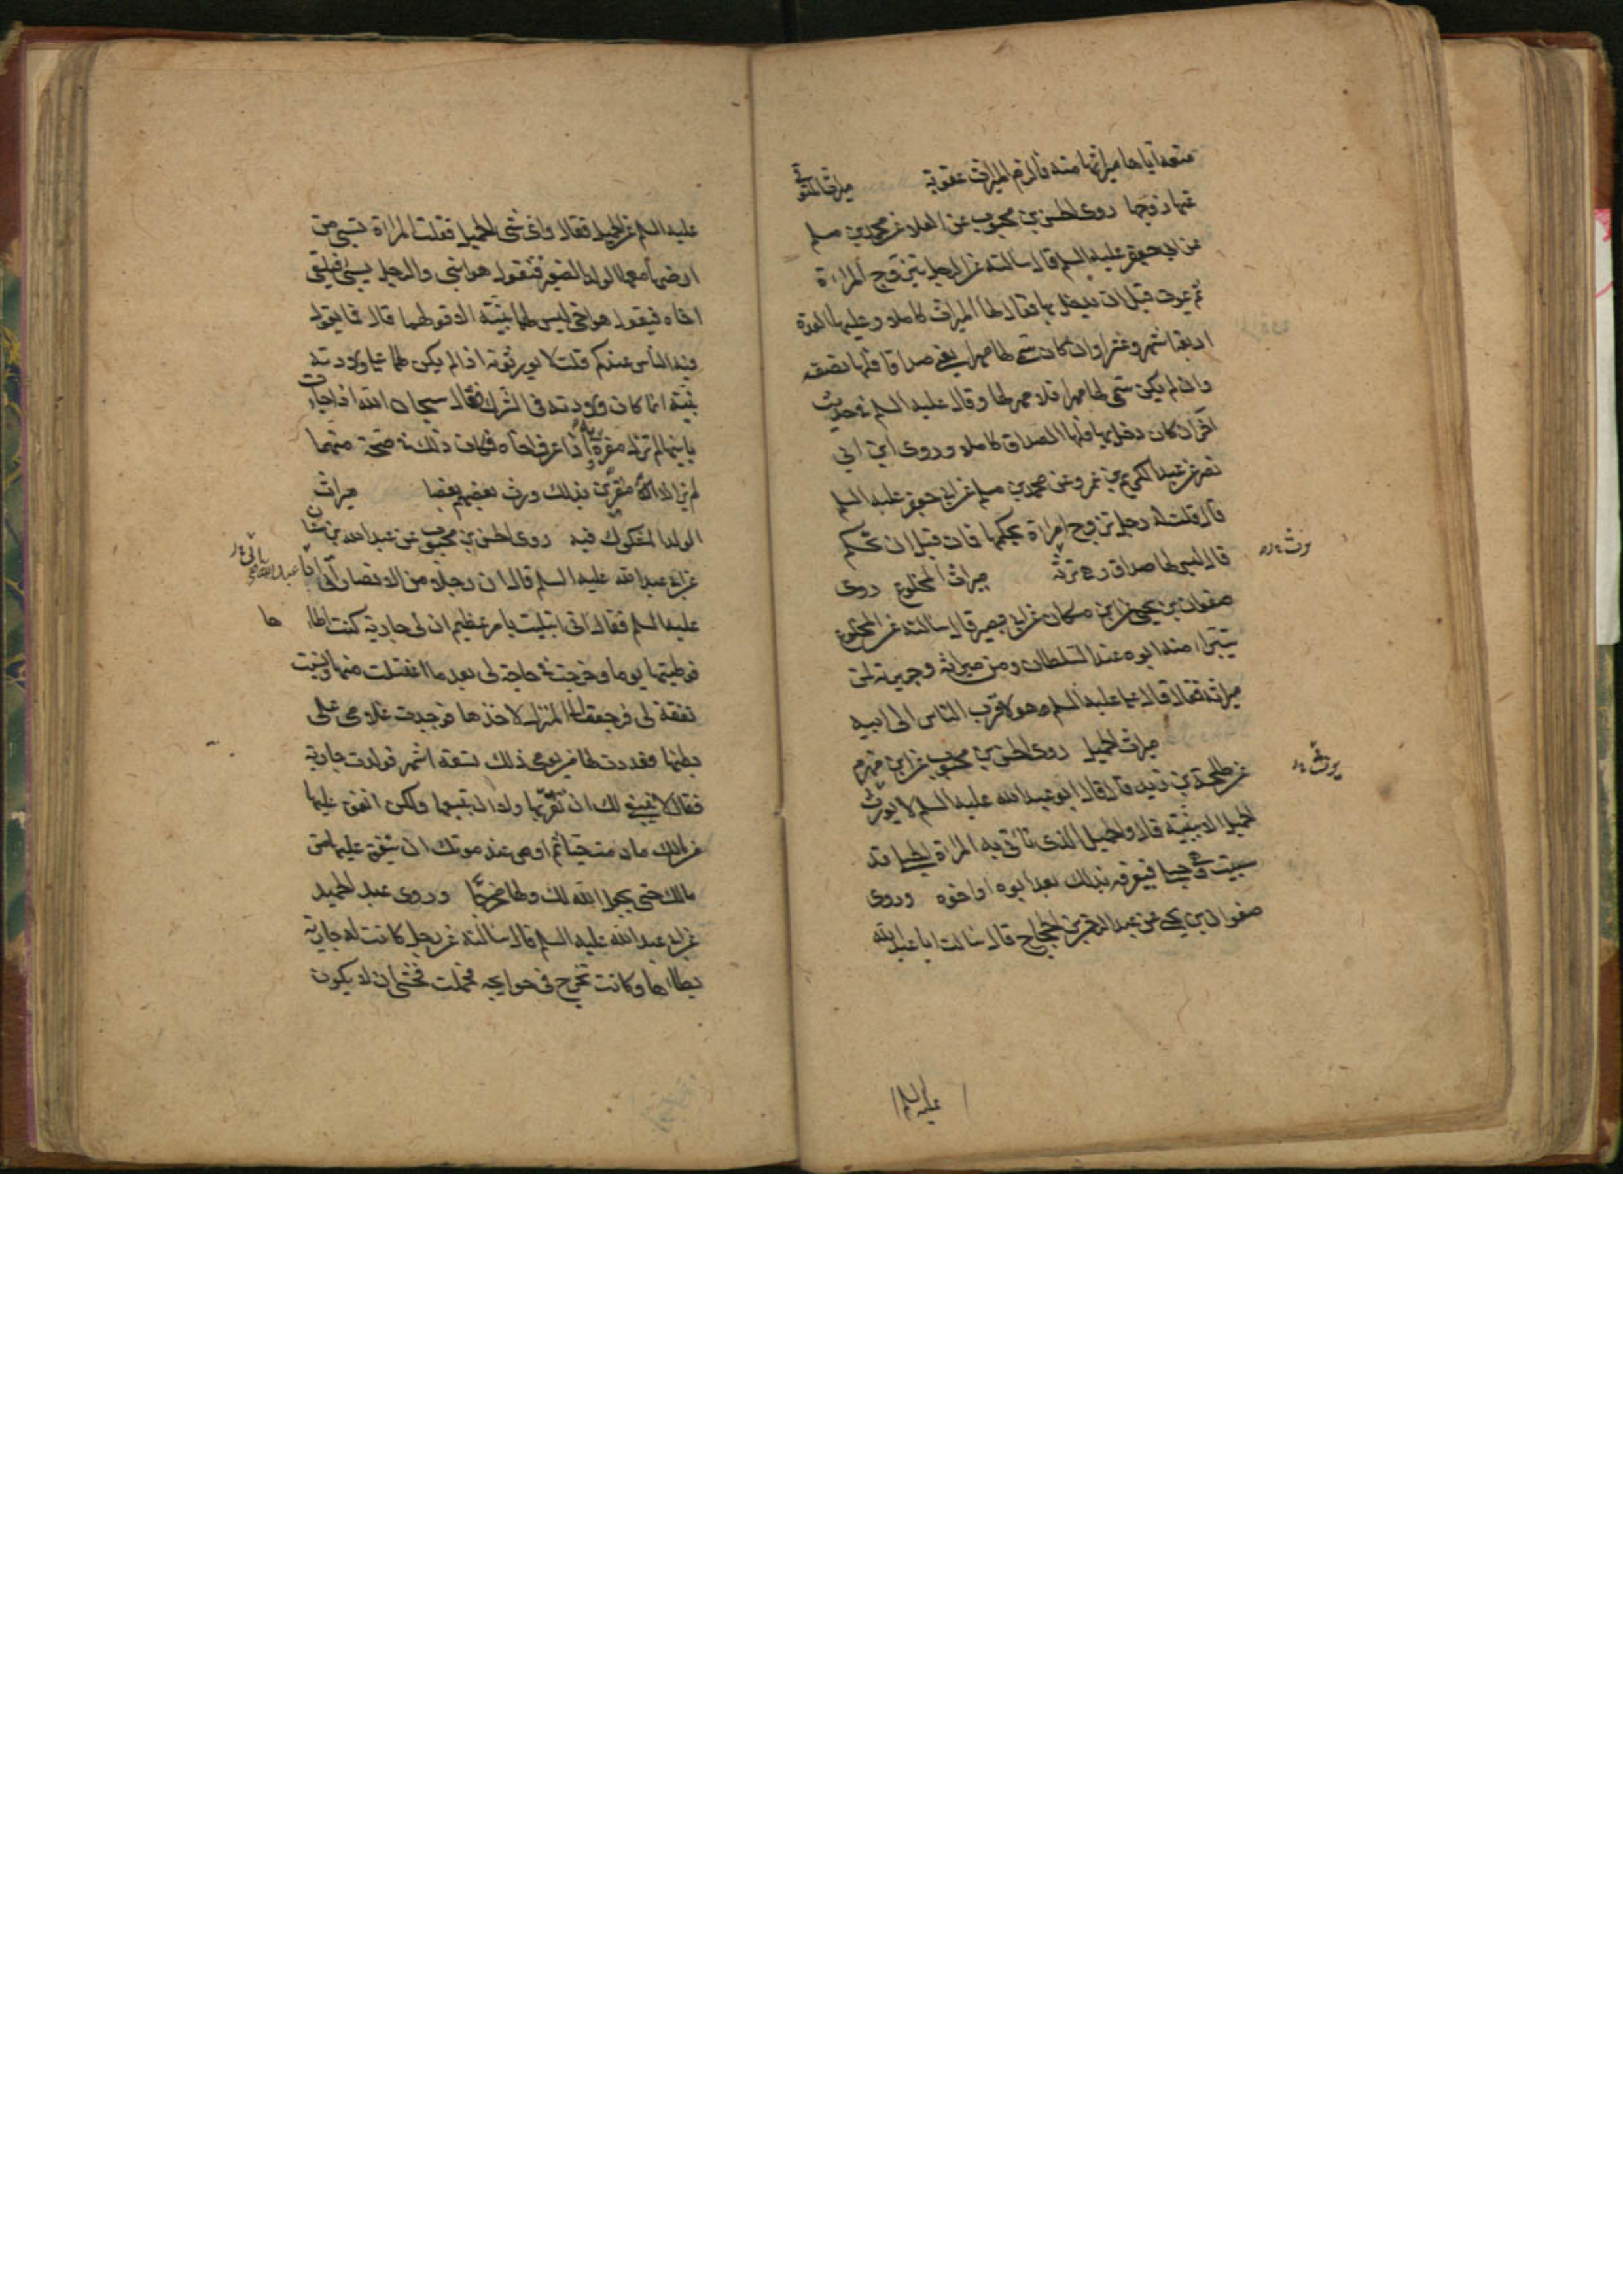 منعه اياها ميراثها منه فالزم الميراث عقوبة ميراث المتوفى
عنها زوجها روى الحسن بن محبوب عن العلا عن محمد بن مسلم
عن ابي جعفر عليه السلم قال سالته عن الرجل يتزوج المراة
ثم يموت قبل ان يدخل بها فقال لها الميراث كاملا وعليها العدة
اربعة اشهر وعشرا وان كان سمى لها مهرا يعنى صداقا فلها نصفه
وان لم يكن سمى لها مهرا فلا مهر لها وقال عليه السلم في حديث
آخر ان كان دخل بها فلها الصداق كاملا وروى ابن ابي
نصر عن عبد الكريم بن عمرو عن محمد بن مسلم عن ابي جعفر عليه السلم
قال قلت له رجل تزوج امراة بحكمها فمات قبل ان تحكم
قال ليس لها صداق و هي ترثه ميراث المخلوع روى
صفوان بن يحيى عن ابن مسكان عن ابي بصير قال سالته عن المخلوع
يتبراء منه ابوه عند السلطان ومن ميراثه وجريرته لمن
ميراثه فقال قال علي عليه السلم هو لاقرب الناس الى ابيه
ميراث الحميل روى الحسن بن محبوب عن ابن مهزم
عن طلحة بن زيد قال قال ابو عبد الله عليه السلم لا يورث
الحميل الا ببينة قال والحميل الذى تاتى به المراة حبلى قد
سبيت وهي حبلى فيعرفه بذلك بعد ابوه او اخوه وروى
صفوان بن يحيى عن عبد الرحمن بن الحجاج قال سالت ابا عبد الله
عليه السلم
عليه السلم عن الحميل فقال واى شى الحميل فقلت المراة تسبى من
ارضها معها الولد الصغير فتقول هو ابنى والرجل يسبى فيلقى
اخاه فيقول هو اخى ليس لهما بينة الا قولهما قال فما يقول
فيه الناس عندكم قلت لا يورثونه اذا لم يكن لهما على ولادته
بينة انما كان ولادته فى الشرك فقال سبحان الله اذا جاءت
بابنها لم تزل مقرة به واذا عرف اخاه فكان ذلك في صحة منهما
لم يزالا مقرين بذلك ورث بعضهم بعضا ميراث
الولد المشكوك فيه روى الحسن بن محبوب عن عبد الله بن سنان
عن ابي عبد الله عليه السلم قال ان رجلا من الانصار اتى ابا
عليه السلم فقال انى ابتليت بامر عظيم ان لى جارية كنت اطاءها
فوطيتها يوما وخرجت في حاجة لى بعد ما اغتسلت منها ونسيت
نفقة لى فرجعت الى المنزل لاخذها فوجدت غلامى على
بطنها فعددت لها من يومى ذلك تسعة اشهر فولدت جارية
فقال لا ينبغى لك ان تقربها ولا ان تبيعها ولكن انفق عليها
من مالك ما دمت حيا ثم اوص عند موتك ان ينفق عليها من
مالك حتى يجعل الله لك ولها مخرجا وروى عبد الحميد
عن ابي عبد الله عليه السلم قال سالته عن رجل كانت له جارية
يطاءها وكانت تخرج فى حوايجه فحملت فخشى ان لا يكون